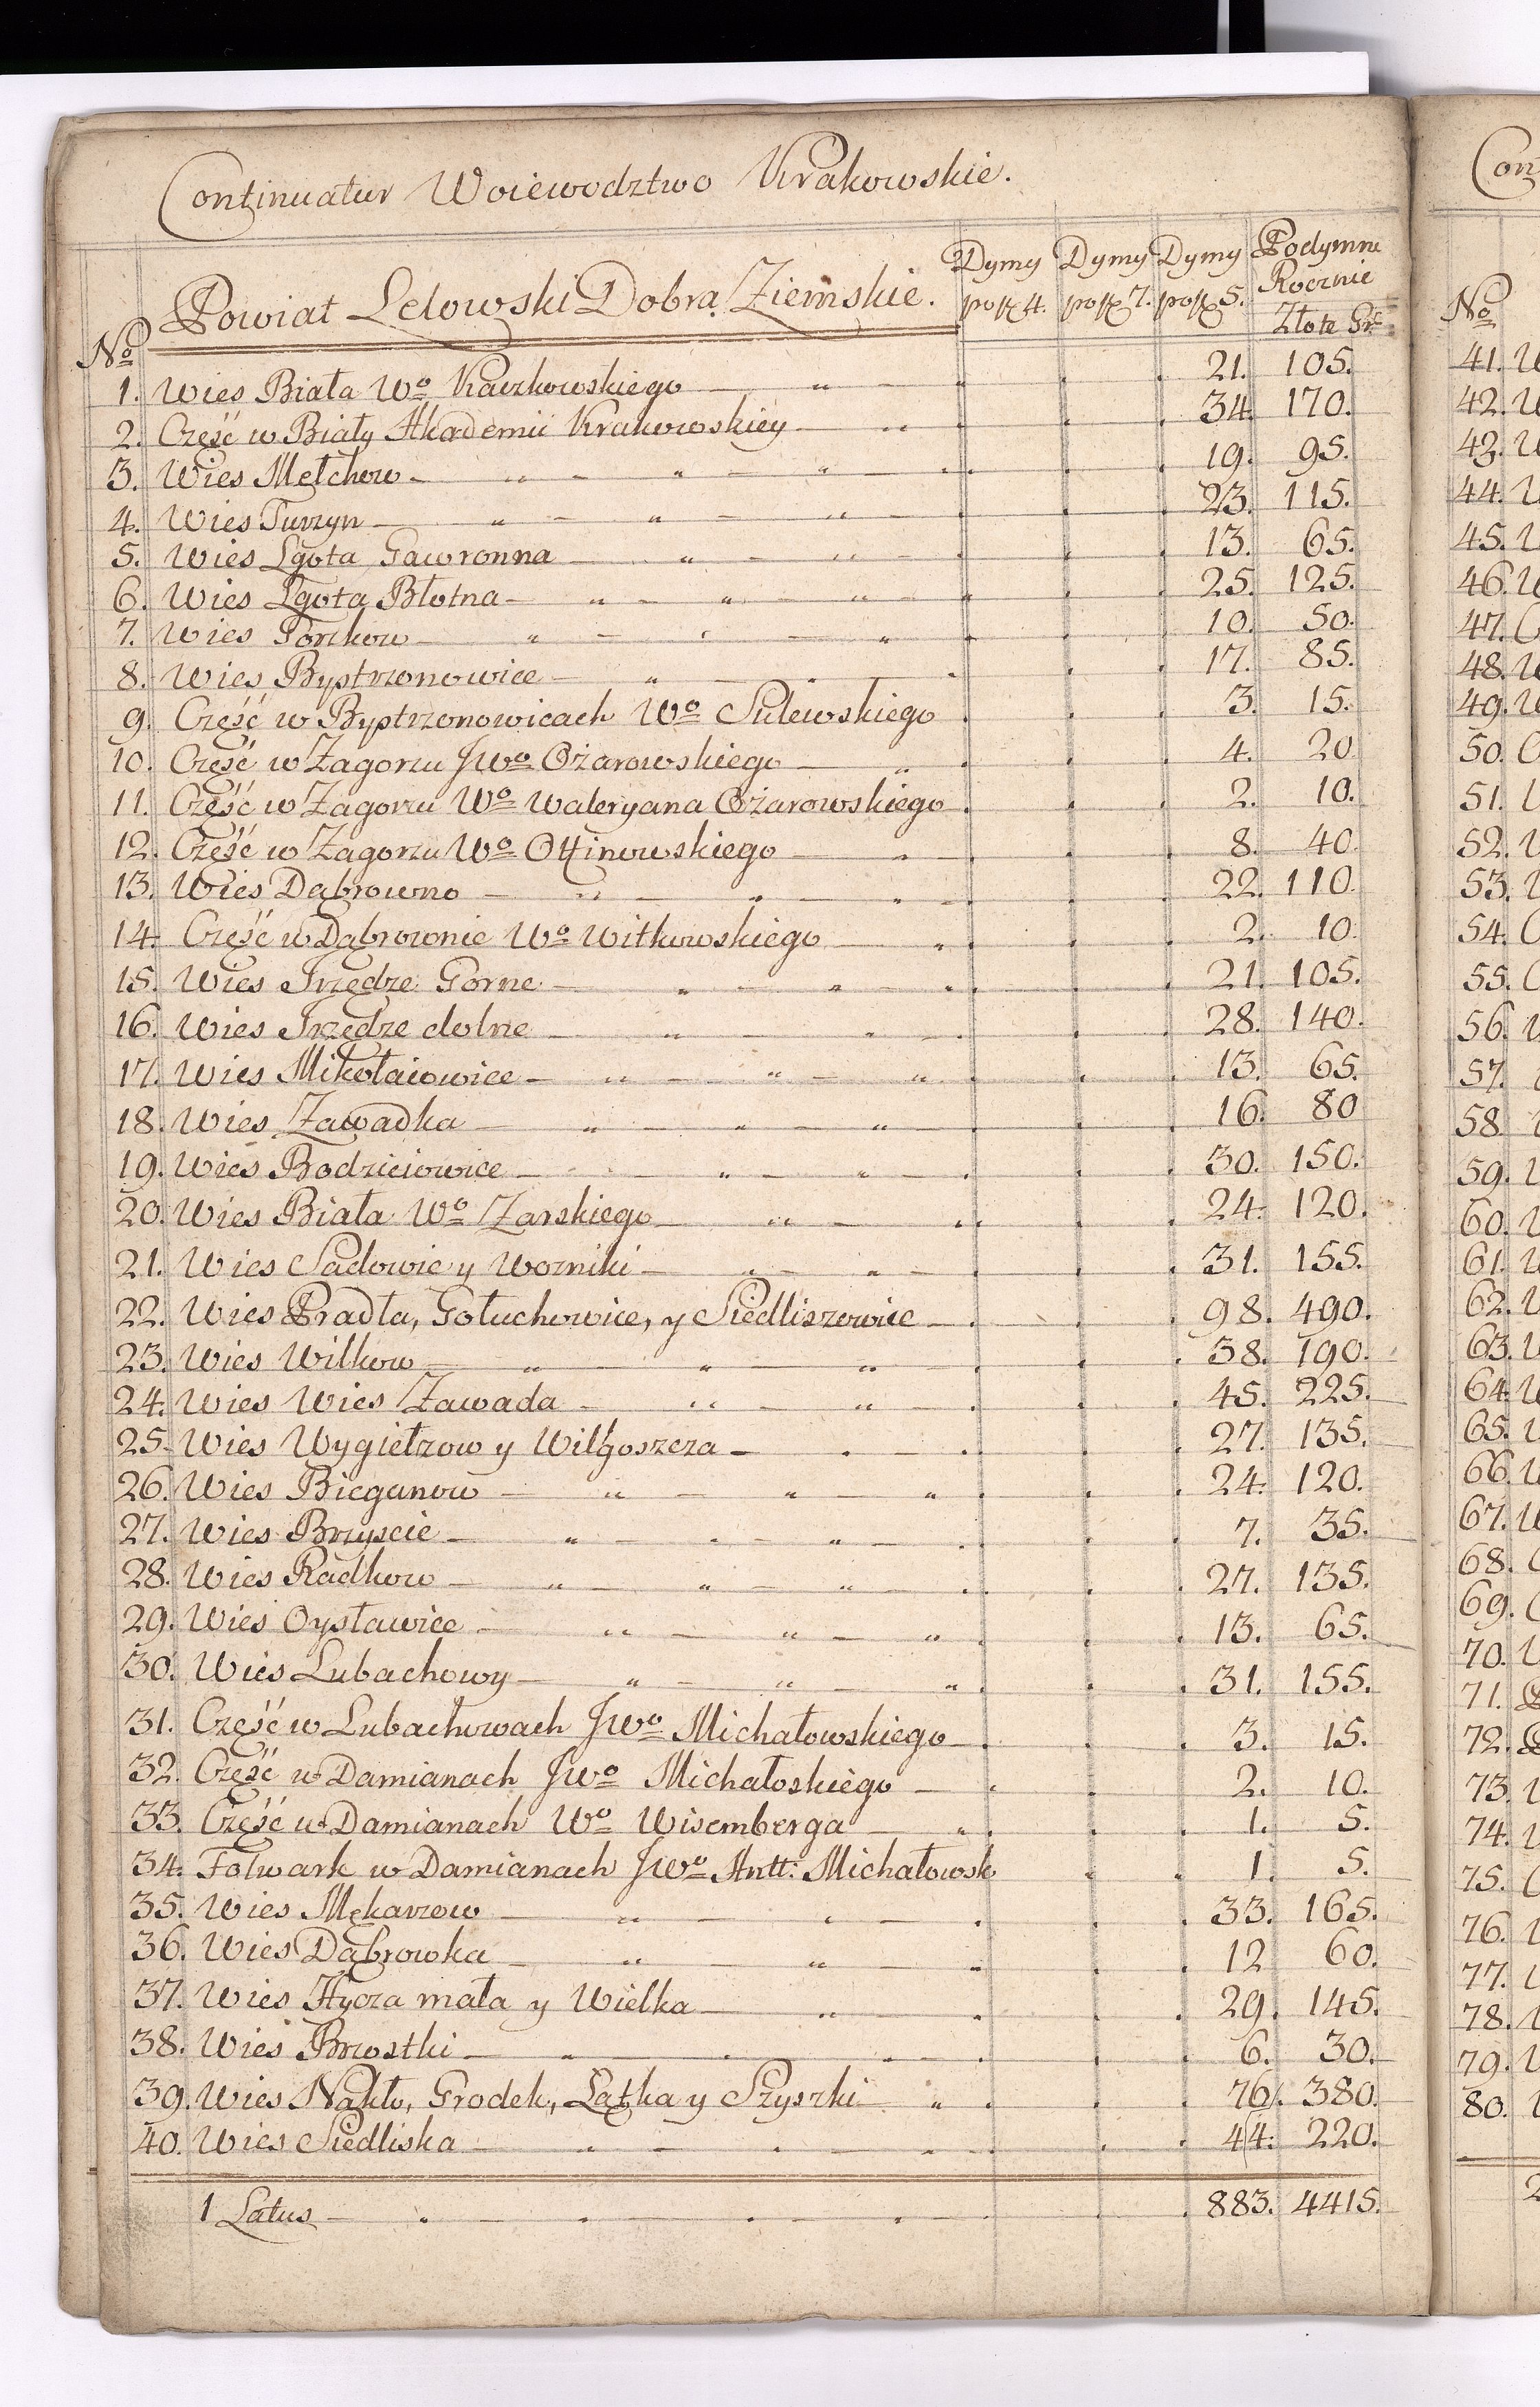 Continuatur Woiewodztwo Krakowskie.
Powiat Lelowski Dobra Ziemskie. Dymy po f 4. Dymy po f 7. Dymy po f 5. Podymne Rocznie Złote Gr:
No
1. Wies Biała Wo Kaczkowskiego 21. 105.
2. Część w Biały Akademii Krakowskiey 34. 170.
3. Wies Mełchow 19. 95.
4. Wies Turzyn 23. 115.
5. Wies Lgota Gawronna 13. 65.
6. Wies Lgota Błotna 25. 125.
7. Wies Konikow 10. 50.
8. Wies Bystrzonowice 17. 85.
9. Część w Bystrzonowicach Wo Sulewskiego 3. 15.
10. Część w Zagorzu Jwo Ożarowskiego 4. 20
11. Część w Zagorzu Wo Waleryana Ożarowskiego 2. 10.
12. Część w Zagorzu Wo Ottinowskiego 8. 40.
13. Wies Dąbrowno 22. 110.
14. Część w Dąbrownie Wo Witkowskiego 2. 10.
15. Wies Irządze Gorne 21. 105.
16. Wies Irządze dolne 28. 140.
17. Wies Mikołaiowice 13. 65.
18. Wies Zawadka 16. 80
19. Wies Bodzieiowice 30. 150.
20. Wies Biała Wo Zarskiego 24. 120.
21. Wies Sadowie y Wozniki 31. 155.
22. Wies Pradła, Gołuchowice, y Siedliszowice 98. 490.
23. Wies Wilkow 38. 190.
24. Wies Wies Zawada 45. 225.
25. Wies Wygiełzow y Wilgoszcza 27. 135.
26. Wies Bieganow 24. 120.
27. Wies Brzyscie 7. 35.
28. Wies Radkow 27. 135.
29. Wies Oysławice 13. 65.
30. Wies Lubachowy 31. 155.
31. Część w Lubachowach Jwo Michałowskiego 3. 15.
32. Część w Damianach Jwo Michałoskiego 2. 10.
33. Część w Damianach Wo Wisemberga 1. 5.
34. Folwark w Damianach Jwo Antt: Michałowsk 1. 5.
35. Wies Mękarzow 33. 165.
36. Wies Dąbrowka 12 60.
37. Wies Hycza mała y Wielka 29. 145.
38. Wies Brzostki 6. 30.
39. Wies Nakło, Grodek, Łatka y Szyszki 76. 380.
40. Wies Siedliska 44. 220.
1 Latus 883. 4415.
Con
No
41. W
42. W
43. W
44. W
45. W
46. W
47. C
48. W
49. W
50. C
51.
52. W
53.
54. C
55. C
56.
57.
58.
59.
60.
61. W
62. W
63. W
64. W
65. W
66. W
67. W
68. C
69. C
70.
71.
72.
73.
74.
75. C
76.
77.
78.
79.
80.
2